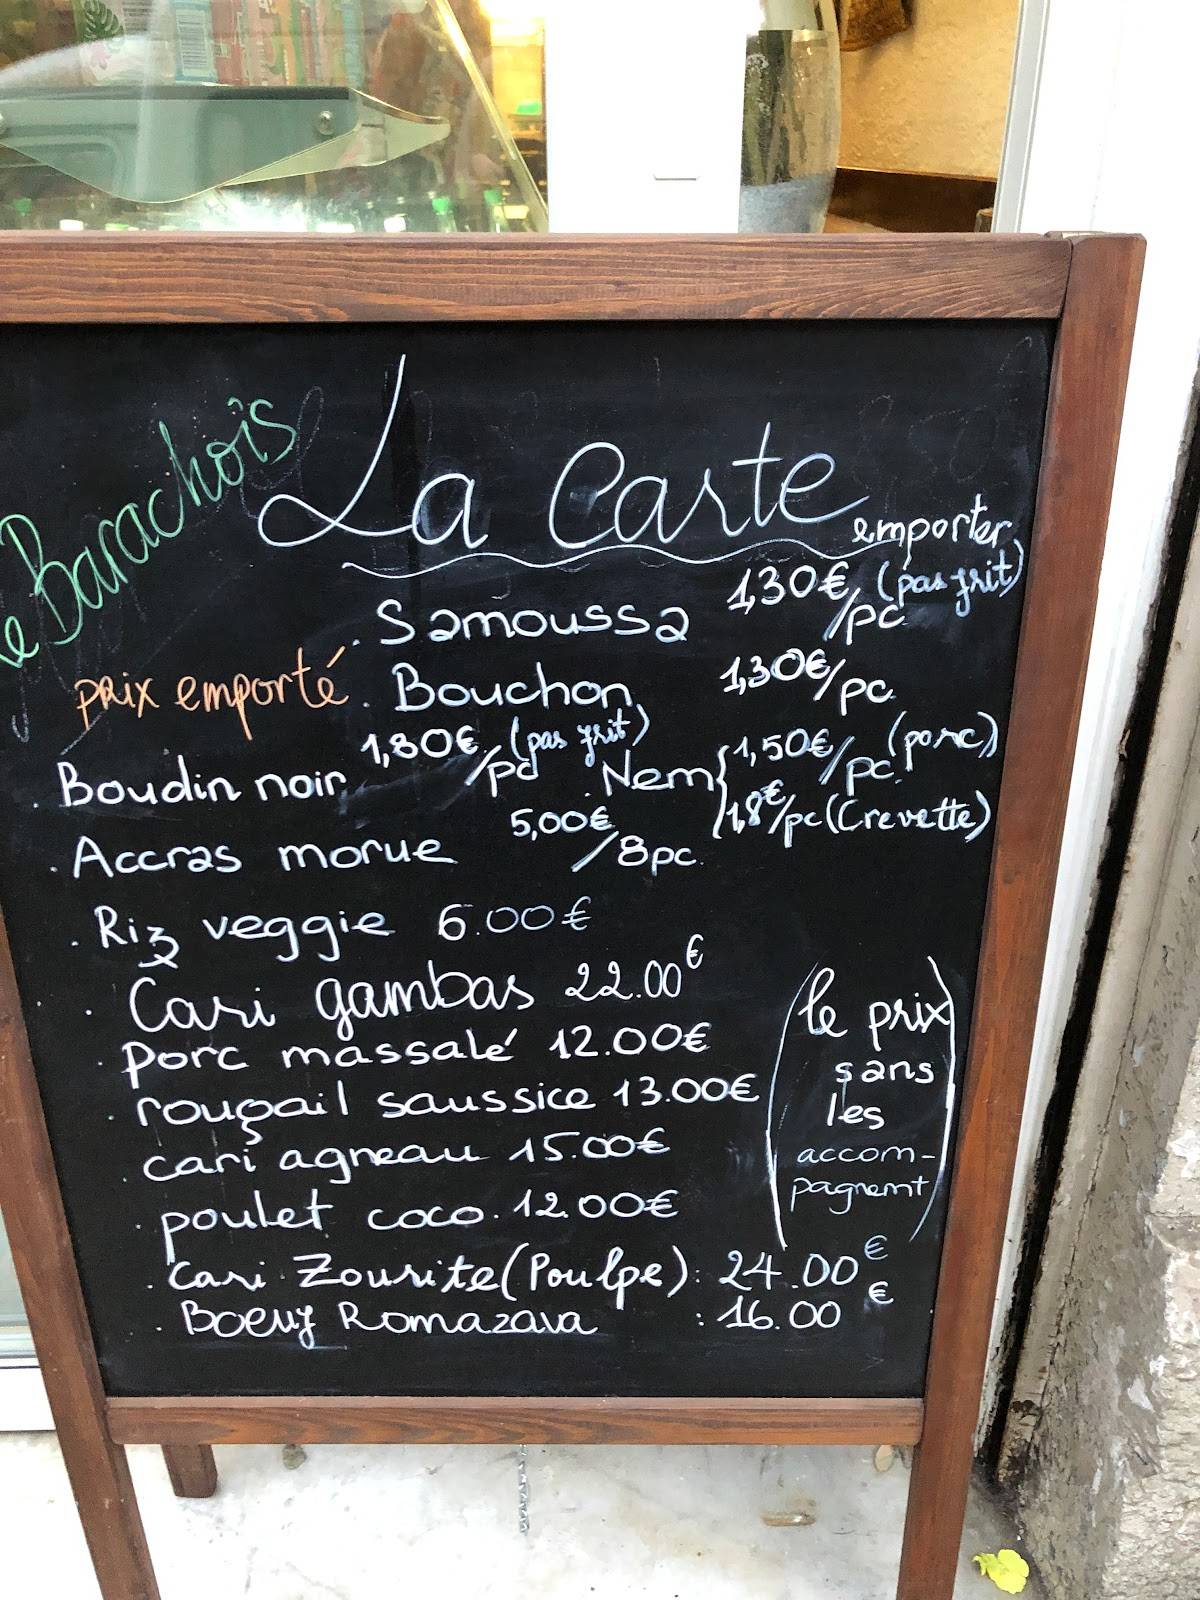 Le Barachois
La Carte
emporter
. Samoussa 1,30€/pc (pas frit)
prix emporté
. Bouchon 1,30€/pc
. Boudin noir 1,80€/pc (pas frit)
. Nem { 1,50€/pc. (porc)
1,8€/pc (Crevette)
. Accras morue 5,00€/8pc.
. Riz veggie 6.00€
. Cari gambas 22.00€
. porc massalé 12.00€
. rougail saussice 13.00€
. cari agneau 15.00€
. poulet coco. 12.00€
. Cari Zourite (Poulpe) : 24.00€
. Boeuf Romazava : 16.00€
(le prix
sans
les
accom-
pagnemt)